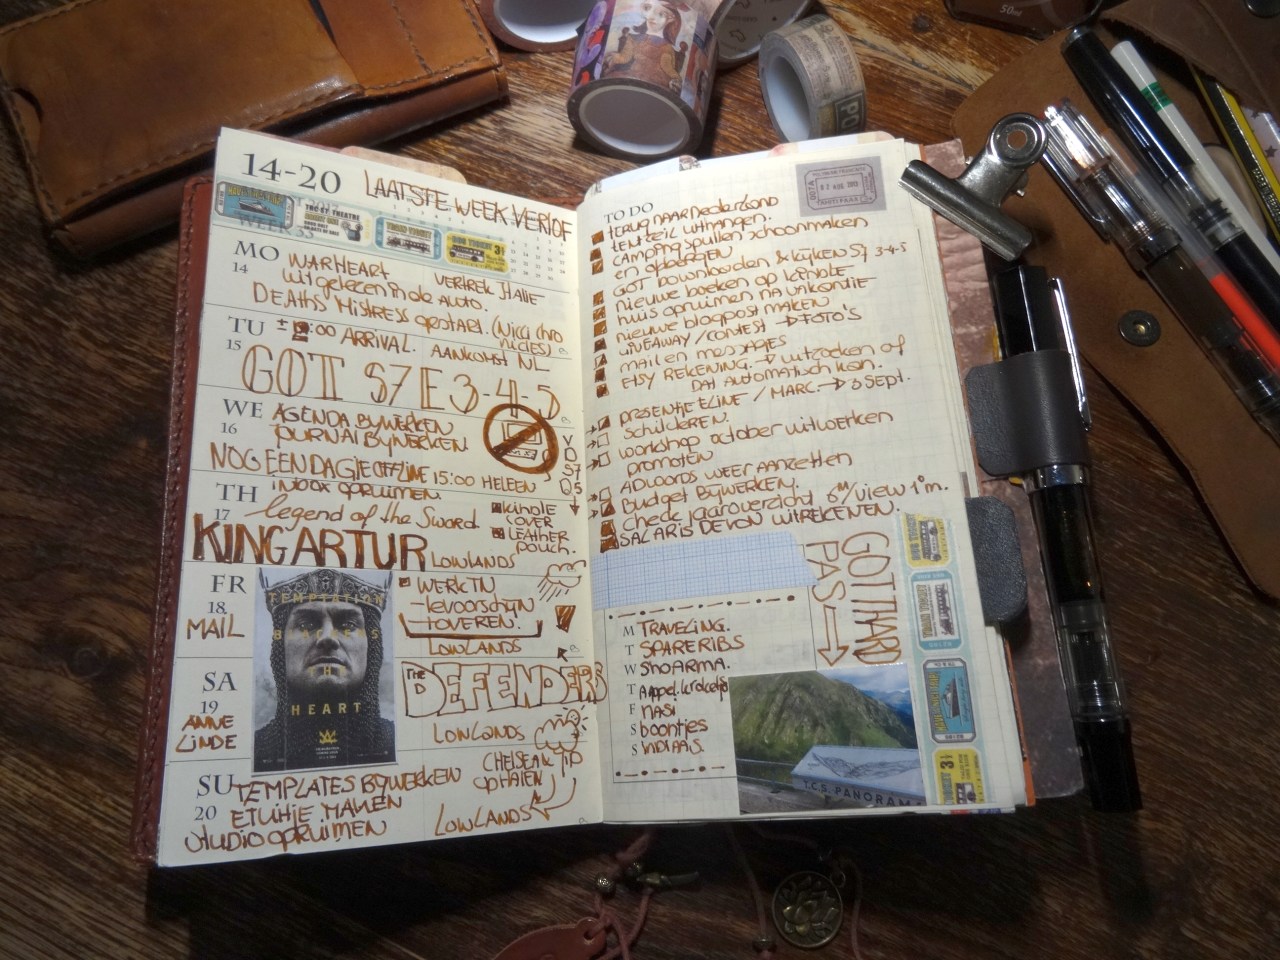 14-20
LAATSTE WEEK VERLOF
WEEK 33
MO
14
WARHEART
uitgelezen in de auto.
VERTREK ITALIE
DEATHS MISTRESS opstart. (Nicci chro
nicles)
TU
15
:00 ARRIVAL. AANKOMST NL
GOT S7 E 3-4-5
WE
16
AGENDA BYWERKEN
JOURNAL BYWERKEN
NOG EEN DAGJE OFFLINE 15:00 HELEEN
INBOX opruimen.
TH
17
legend of the Sword
KING ARTUR
LOWLANDS
kindle
COVER
LEATHER
pouch.
FR
18
MAIL
WERK IN
tevoorschijn
TOVEREN.
LOWLANDS
TEMPTATION
BLACKENS
THE
HEART
SA
19
ANNE
LINDE
THE DEFENDERS
LOWLANDS
SU
20
TEMPLATES BYWERKEN
ETUITJE MAKEN
studio opruimen
CHELSEA
OPHALEN
LOWLANDS
TO DO
terug naar Nederland
TENTZEIL uithangen.
camping spullen schoonmaken
en opbergen
GOT downloaden & kijken S7 3-4-5
nieuwe boeken op kindle
huis opruimen na vakantie
nieuwe blogpost maken
GIVEAWAY/CONTEST → FOTO'S
mail en messages
ETSY REKENING. → uitzoeken of
dat automatisch kan.
presentje ELINE / MARC. → 3 sept.
schilderen.
workshop october uitwerken
promoten
ADWORDS WEER AANZETTEN
Budget BYWERKEN.
Check jaaroverzicht
SALARIS DEVON UITREKENEN.
GOTTHARD
PAS
M TRAVELING.
T SPARERIBS
W SHOARMA.
T Appel.krokets
F nasi
S boontjes
S Indiaas.
T.C.S. PANORAMA
50ml